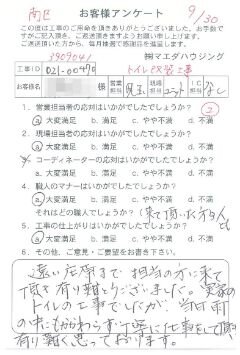 南区 お客様アンケート 9/30
この度は工事のご用命を頂きありがとうございました。お手数で
すがご記入頂き、ご返送頂きますようお願い申し上げます。
ご返送頂いた方から、毎月抽選で感謝品を進呈します。
3909041 ㈱マエダハウジング
工事ID 021-00470 トイレ改修工事
お客様名 様 営業担当 現場担当 工事担当
1. 営業担当者の応対はいかがでしたでしょうか? ②
ⓐ大変満足 b.満足 c.やや不満 d.不満
2. 現場担当者の応対はいかがでしたでしょうか?
ⓐ大変満足 b.満足 c.やや不満 d.不満
3. コーディネーターの応対はいかがでしたでしょうか?
a.大変満足 b.満足 c.やや不満 d.不満
4. 職人のマナーはいかがでしたでしょうか?
ⓐ大変満足 b.満足 c.やや不満 d.不満
それはどの職人でしょうか?(来て頂いた方
5. 工事の仕上がりはいかがでしたでしょうか?
ⓐ大変満足 b.満足 c.やや不満 d.不満
6. その他、ご意見・ご要望をお書き下さい。
遠い店席まで担当の方に来て
頂き有り難とうございました。実家の
トイレの工事でしたが、当日雨
の中にもかかわらず丁寧に仕事をして頂
有り難く思っております。